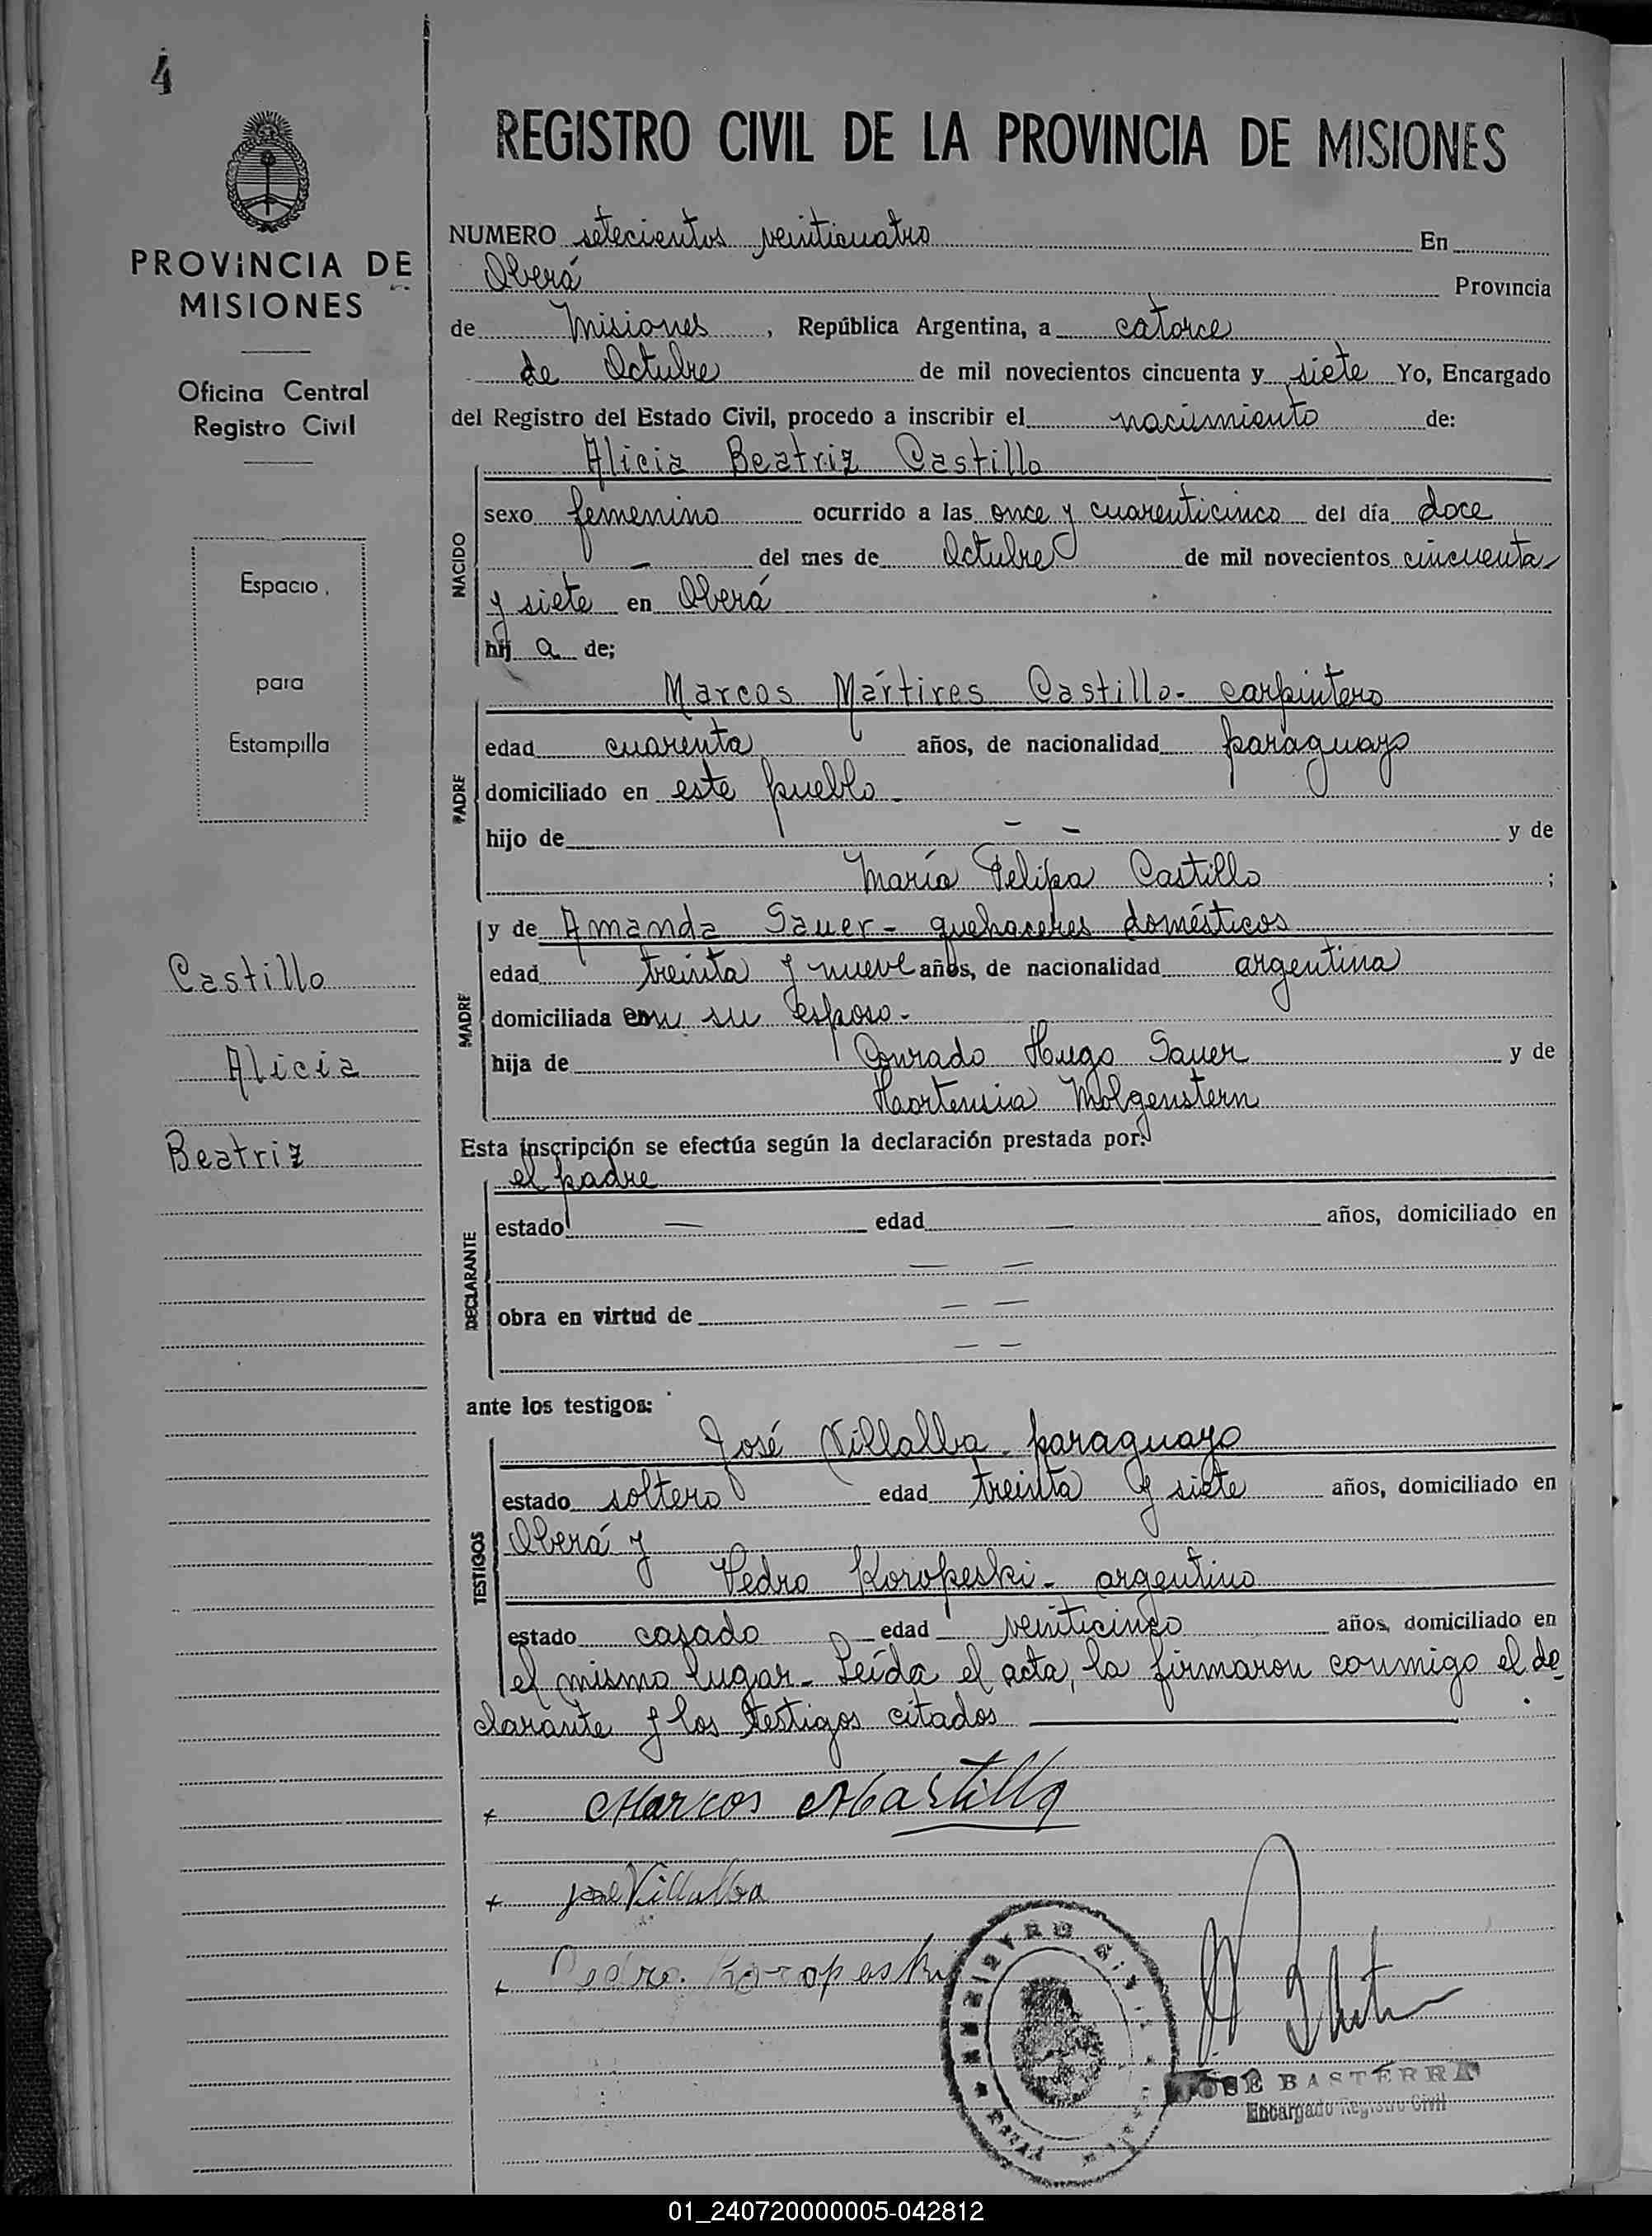 4
PROVINCIA DE
MISIONES
Oficina Central
Registro Civil
Espacio
para
Estampilla
Castillo
Alicia
Beatriz
REGISTRO CIVIL DE LA PROVINCIA DE MISIONES
NUMERO setecientos veinticuatro En
Oberá Provincia
de Misiones, República Argentina, a catorce
de Octubre de mil novecientos cincuenta y siete Yo, Encargado
del Registro del Estado Civil, procedo a inscribir el nacimiento de:
Alicia Beatriz Castillo
NACIDO
sexo femenino ocurrido a las once y cuarenticinco del día doce
- del mes de Octubre de mil novecientos cincuenta
y siete en Oberá
hij a de;
PADRE
Marcos Mártires Castillo - carpintero
edad cuarenta años, de nacionalidad paraguayo
domiciliado en este pueblo -
hijo de - - y de
María Felipa Castillo ;
MADRE
y de Amanda Sauer - quehaceres domésticos
edad treinta y nueve años, de nacionalidad argentina
domiciliada con su esposo -
hija de Conrado Hugo Sauer y de
Hortensia Molgenstern
Esta inscripción se efectúa según la declaración prestada por:
DECLARANTE
el padre
estado — edad — años, domiciliado en
— —
obra en virtud de — —
— —
ante los testigos:
TESTIGOS
José Villalba - paraguayo
estado soltero edad treinta y siete años, domiciliado en
Oberá y
Pedro Koropeski - argentino
estado casado edad veinticinco años, domiciliado en
el mismo lugar - Leída el acta, la firmaron conmigo el de
clarante y los testigos citados
Marcos MCastillo
José Villalba
Pedro Koropeski
REGISTRO CIVIL
JOSE BASTERRA
Encargado Registro Civil
01_240720000005-042812